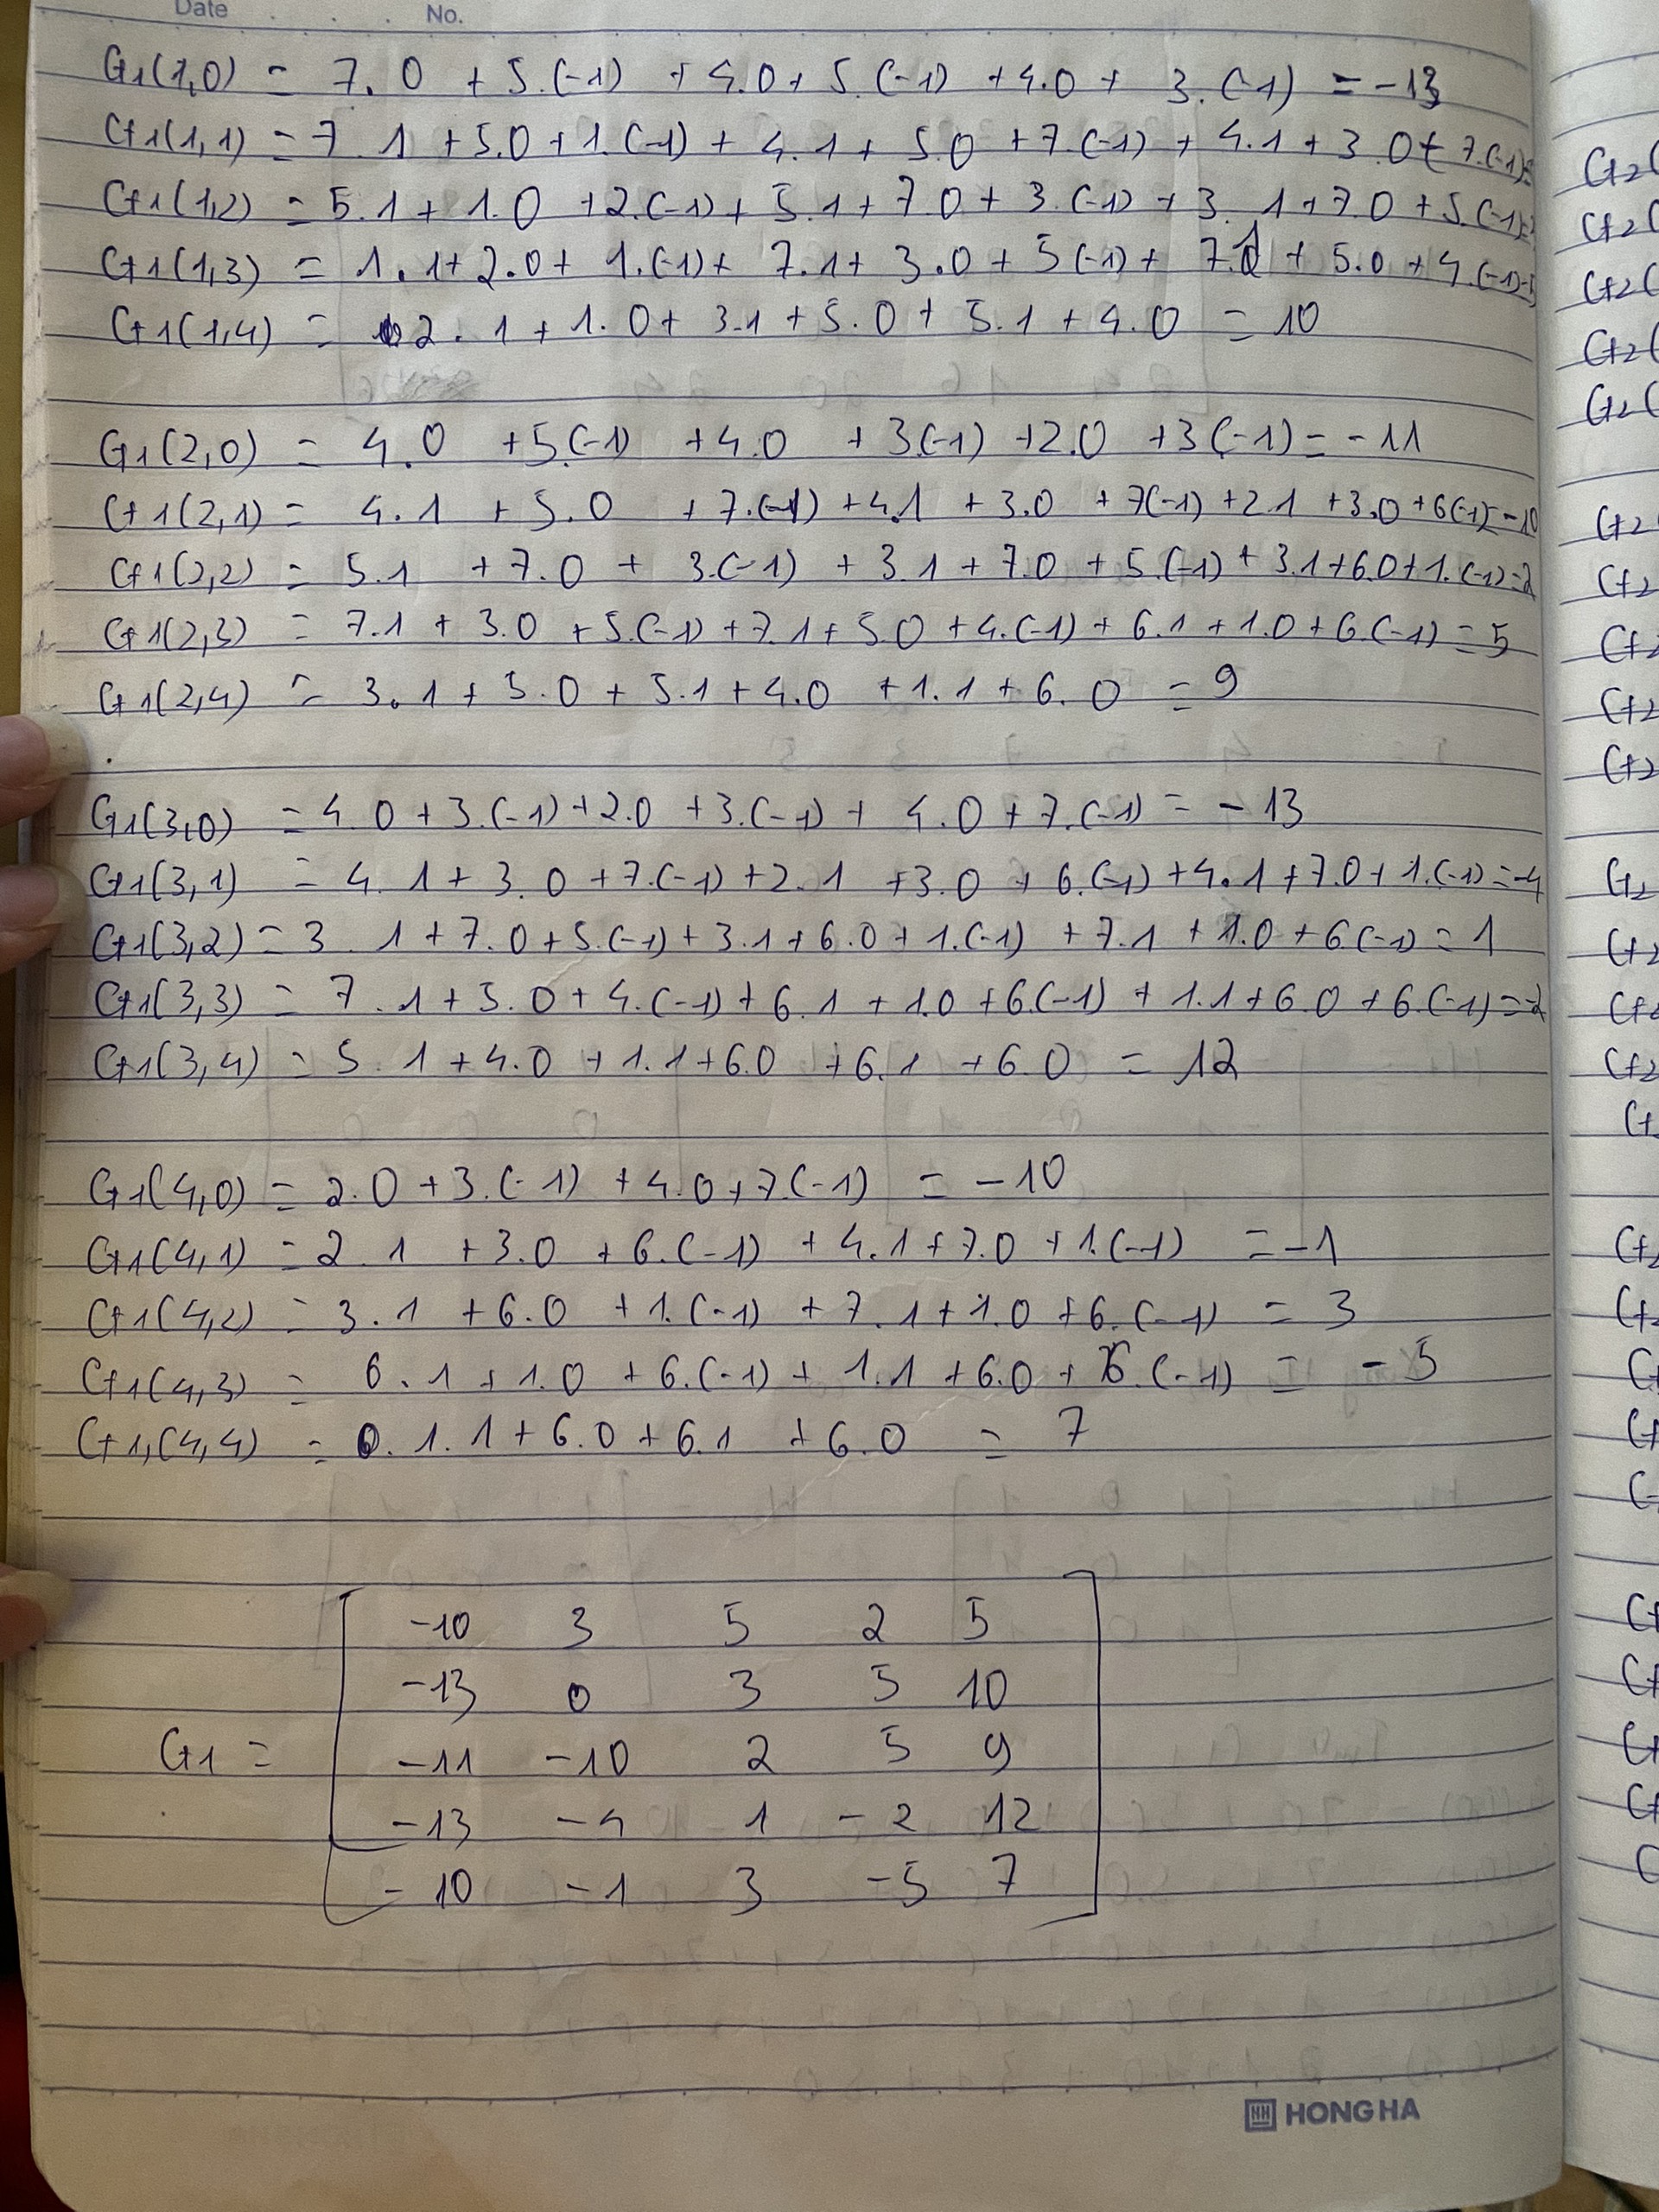 Date . . . No.
G1(1,0) = 7.0 + 5.(-1) + 4.0 + 5.(-1) + 4.0 + 3.(-1) = -13
G1(1,1) = 7.1 + 5.0 + 1.(-1) + 4.1 + 5.0 + 7.(-1) + 4.1 + 3.0 + 7.(-1)=
G1(1,2) = 5.1 + 1.0 + 2.(-1) + 5.1 + 7.0 + 3.(-1) + 3.1 + 7.0 + 5.(-1)=
G1(1,3) = 1.1 + 2.0 + 1.(-1) + 7.1 + 3.0 + 5(-1) + 7.1 + 5.0 + 4.(-1)=5
G1(1,4) = 2.1 + 1.0 + 3.1 + 5.0 + 5.1 + 4.0 = 10
G1(2,0) = 4.0 + 5.(-1) + 4.0 + 3(-1) + 2.0 + 3(-1) = -11
G1(2,1) = 4.1 + 5.0 + 7.(-1) + 4.1 + 3.0 + 7(-1) + 2.1 + 3.0 + 6(-1) = -10
G1(2,2) = 5.1 + 7.0 + 3.(-1) + 3.1 + 7.0 + 5.(-1) + 3.1 + 6.0 + 1.(-1) = 2
G1(2,3) = 7.1 + 3.0 + 5.(-1) + 7.1 + 5.0 + 4.(-1) + 6.1 + 1.0 + 6.(-1) = 5
G1(2,4) = 3.1 + 5.0 + 5.1 + 4.0 + 1.1 + 6.0 = 9
G1(3,0) = 4.0 + 3.(-1) + 2.0 + 3.(-1) + 4.0 + 7.(-1) = -13
G1(3,1) = 4.1 + 3.0 + 7.(-1) + 2.1 + 3.0 + 6.(-1) + 4.1 + 7.0 + 1.(-1) = -4
G1(3,2) = 3.1 + 7.0 + 5.(-1) + 3.1 + 6.0 + 1.(-1) + 7.1 + 1.0 + 6(-1) = 1
G1(3,3) = 7.1 + 5.0 + 4.(-1) + 6.1 + 1.0 + 6.(-1) + 1.1 + 6.0 + 6.(-1) = -2
G1(3,4) = 5.1 + 4.0 + 1.1 + 6.0 + 6.1 + 6.0 = 12
G1(4,0) = 2.0 + 3.(-1) + 4.0 + 7.(-1) = -10
G1(4,1) = 2.1 + 3.0 + 6.(-1) + 4.1 + 7.0 + 1.(-1) = -1
G1(4,2) = 3.1 + 6.0 + 1.(-1) + 7.1 + 1.0 + 6.(-1) = 3
G1(4,3) = 6.1 + 1.0 + 6.(-1) + 1.1 + 6.0 + 6.(-1) = -5
G1,(4,4) = 1.1 + 6.0 + 6.1 + 6.0 = 7
-10 3 5 2 5
-13 0 3 5 10
G1 = -11 -10 2 5 9
-13 -4 1 -2 12
-10 -1 3 -5 7
HH HONG HA